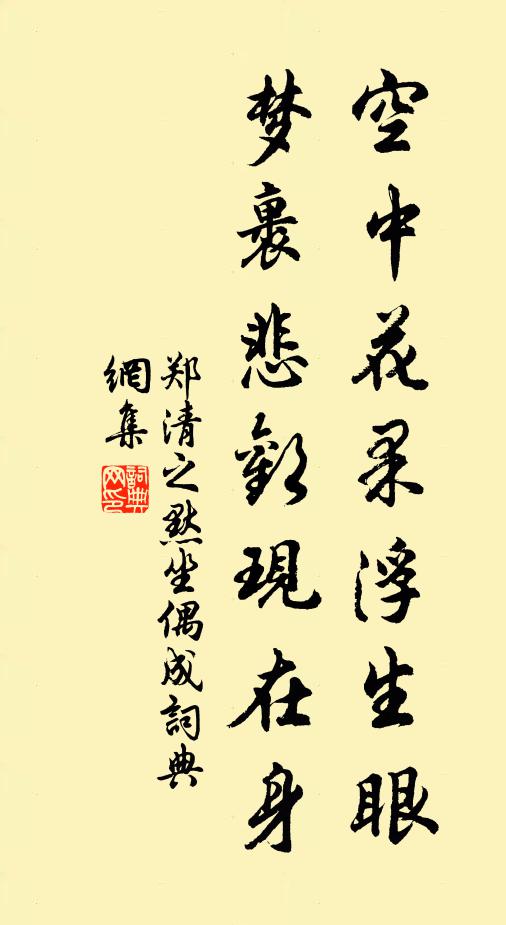 空中花果浮生眼
梦裏悲歡現在身
郑清之默坐偶成詞典
網集
詞典
网印